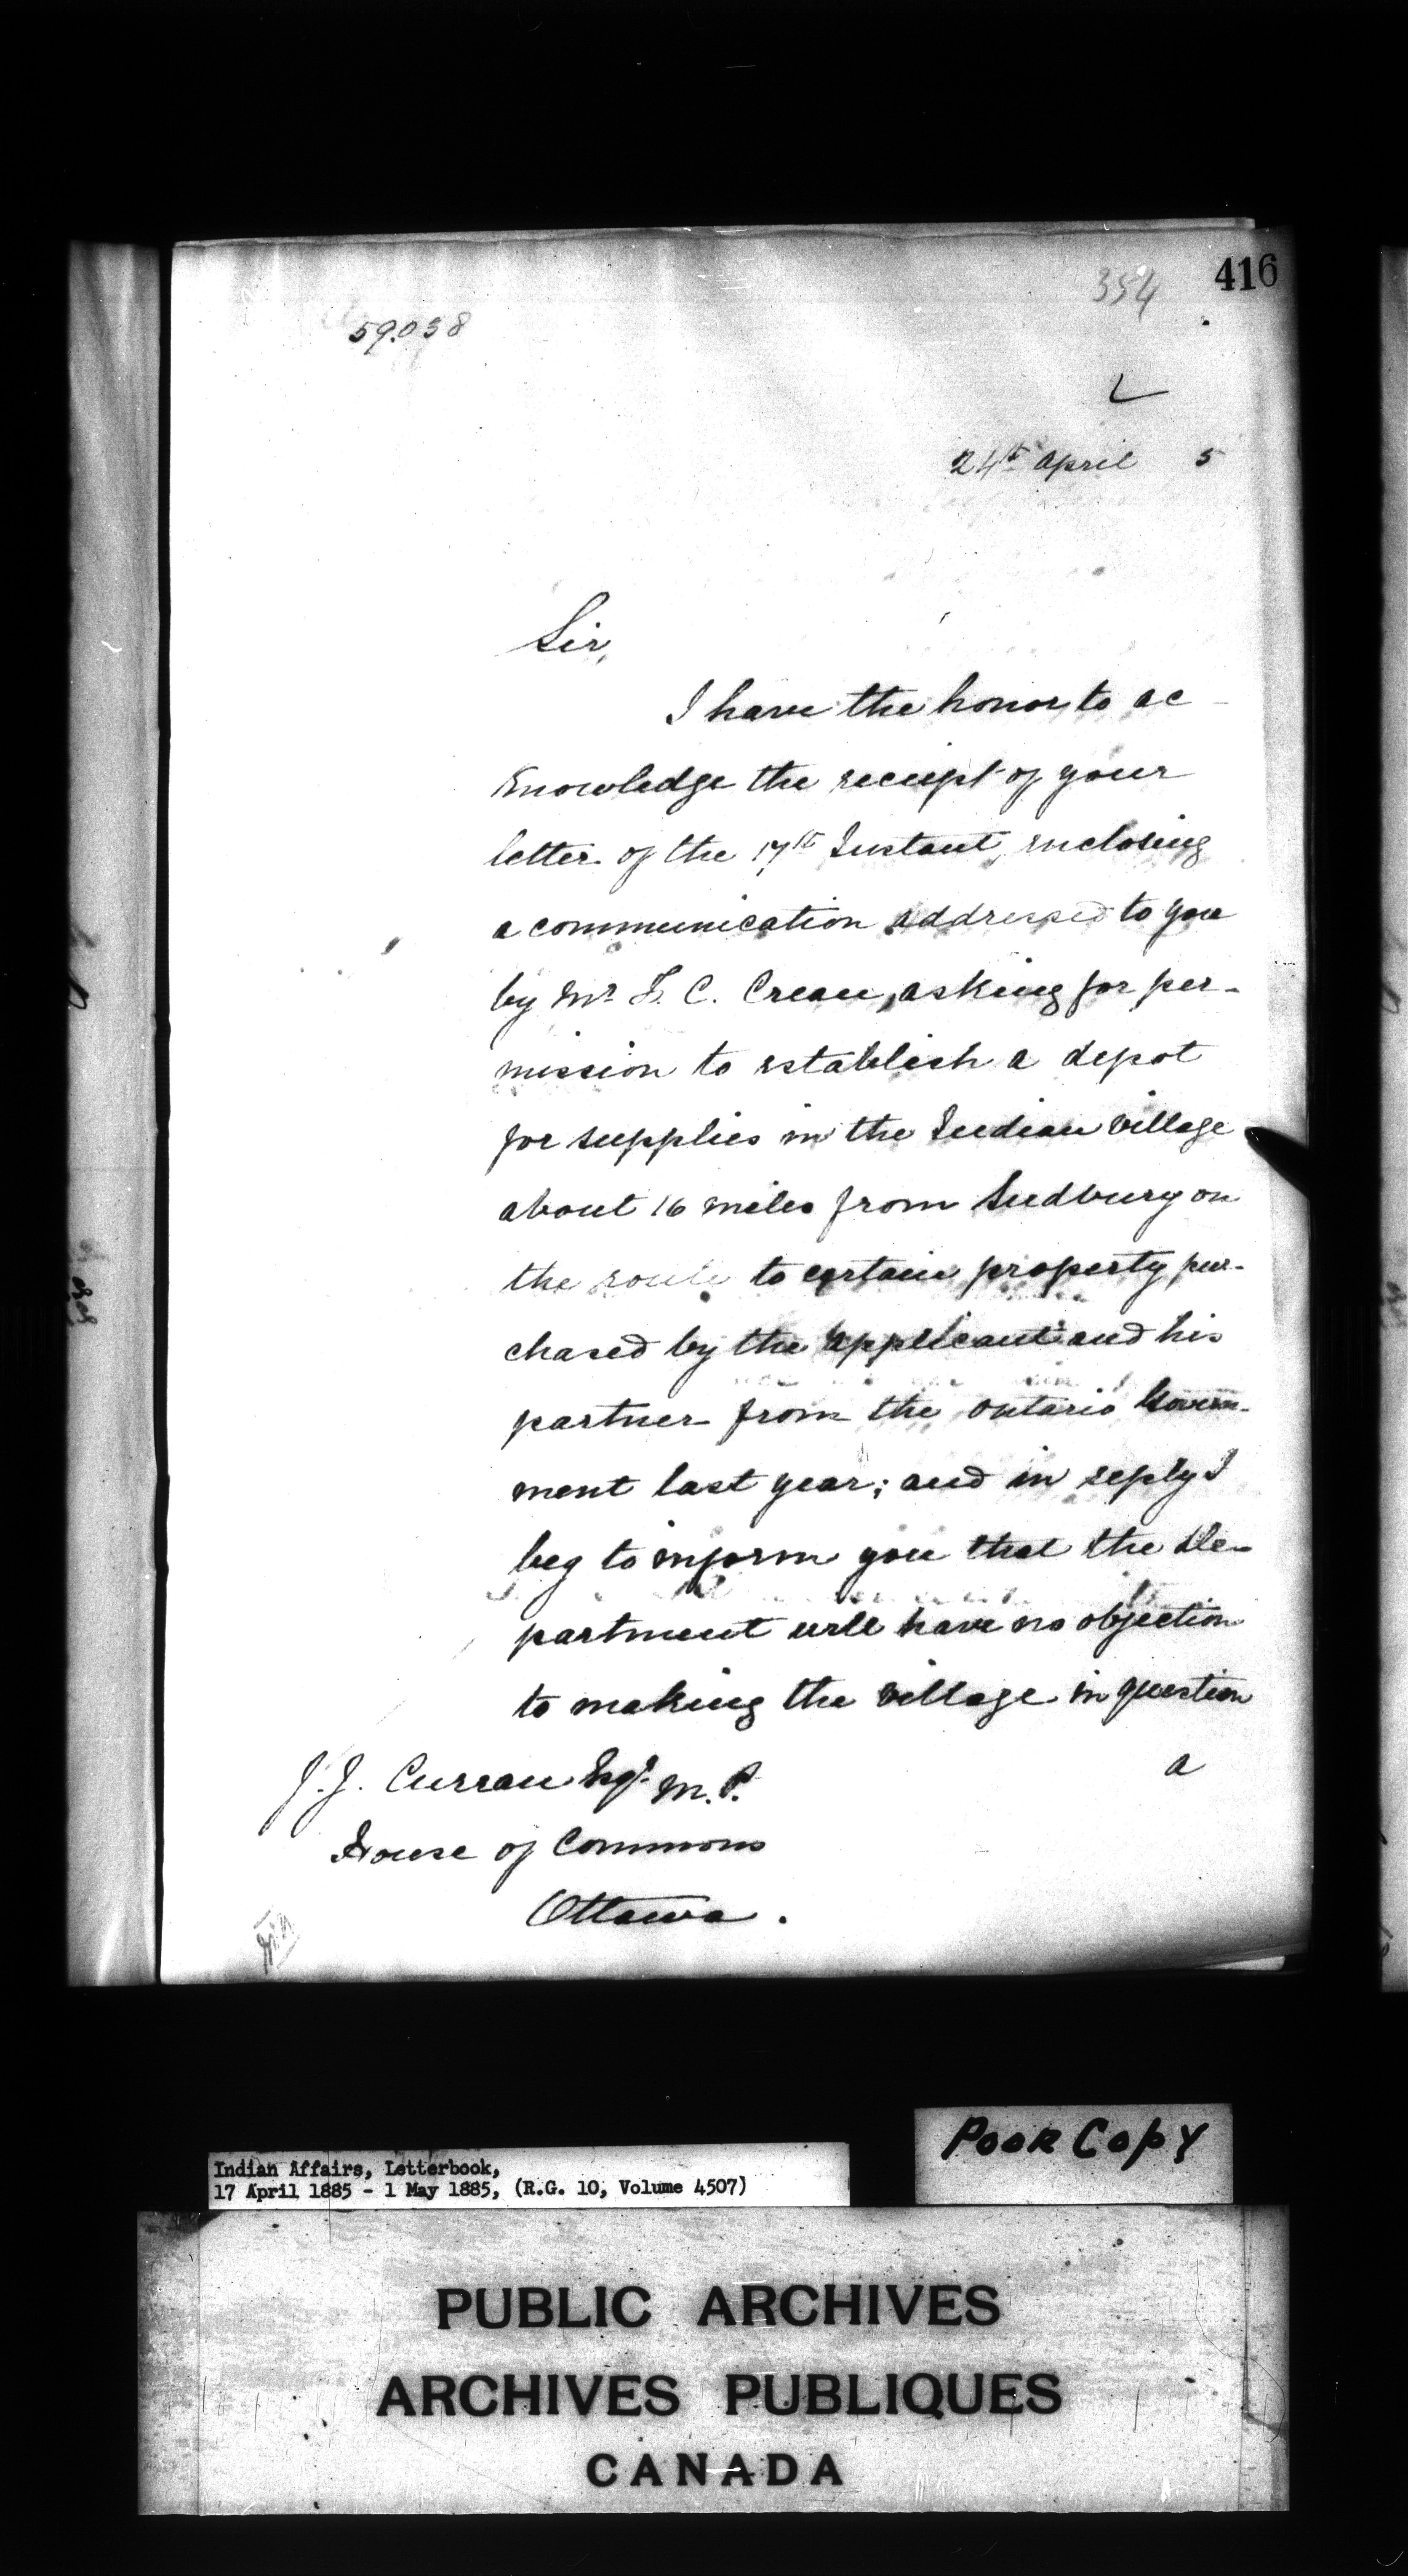 416
354
59.038
L
24th April 5
Sir,
I have the honor to ac-
knowledge the receipt of your
letter of the 17th Instant, enclosing
a communication addressed to you
by Mr F. C. Crean, asking for per-
mission to establish a depot
for supplies in the Indian village
about 16 miles from Sudbury on
the route to certain property pur-
chased by the applicant and his
partner from the Ontario Govern-
ment last year; and in reply I
beg to inform you that the De-
partment will have no objection
to making the village in question
a
J. J. Curran Esqr. M.P.
House of Commons
Ottawa.
Poor Copy
Indian Affairs, Letterbook,
17 April 1885 - 1 May 1885, (R.G. 10, Volume 4507)
PUBLIC ARCHIVES
ARCHIVES PUBLIQUES
CANADA